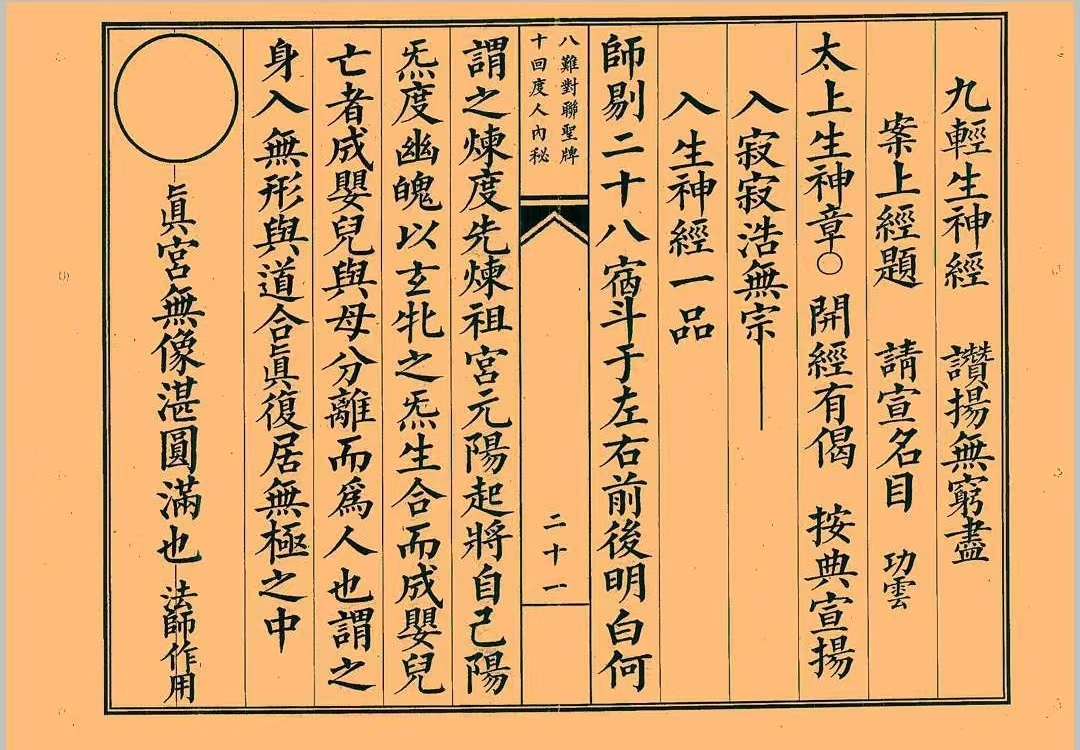 九輕生神經　讚揚無窮盡
案上經題　請宣名目　功雲
太上生神章○　開經有偈　按典宣揚
入寂寂浩無宗
入生神經一品
師剔二十八宿斗于左右前後明白何
八難對聯聖牌
十回度人內秘
二十一
謂之煉度先煉祖宮元陽起將自己陽
炁度幽魄以玄牝之炁生合而成嬰兒
亡者成嬰兒與母分離而爲人也謂之
身入無形與道合眞復居無極之中
眞宮無像湛圓滿也　法師作用